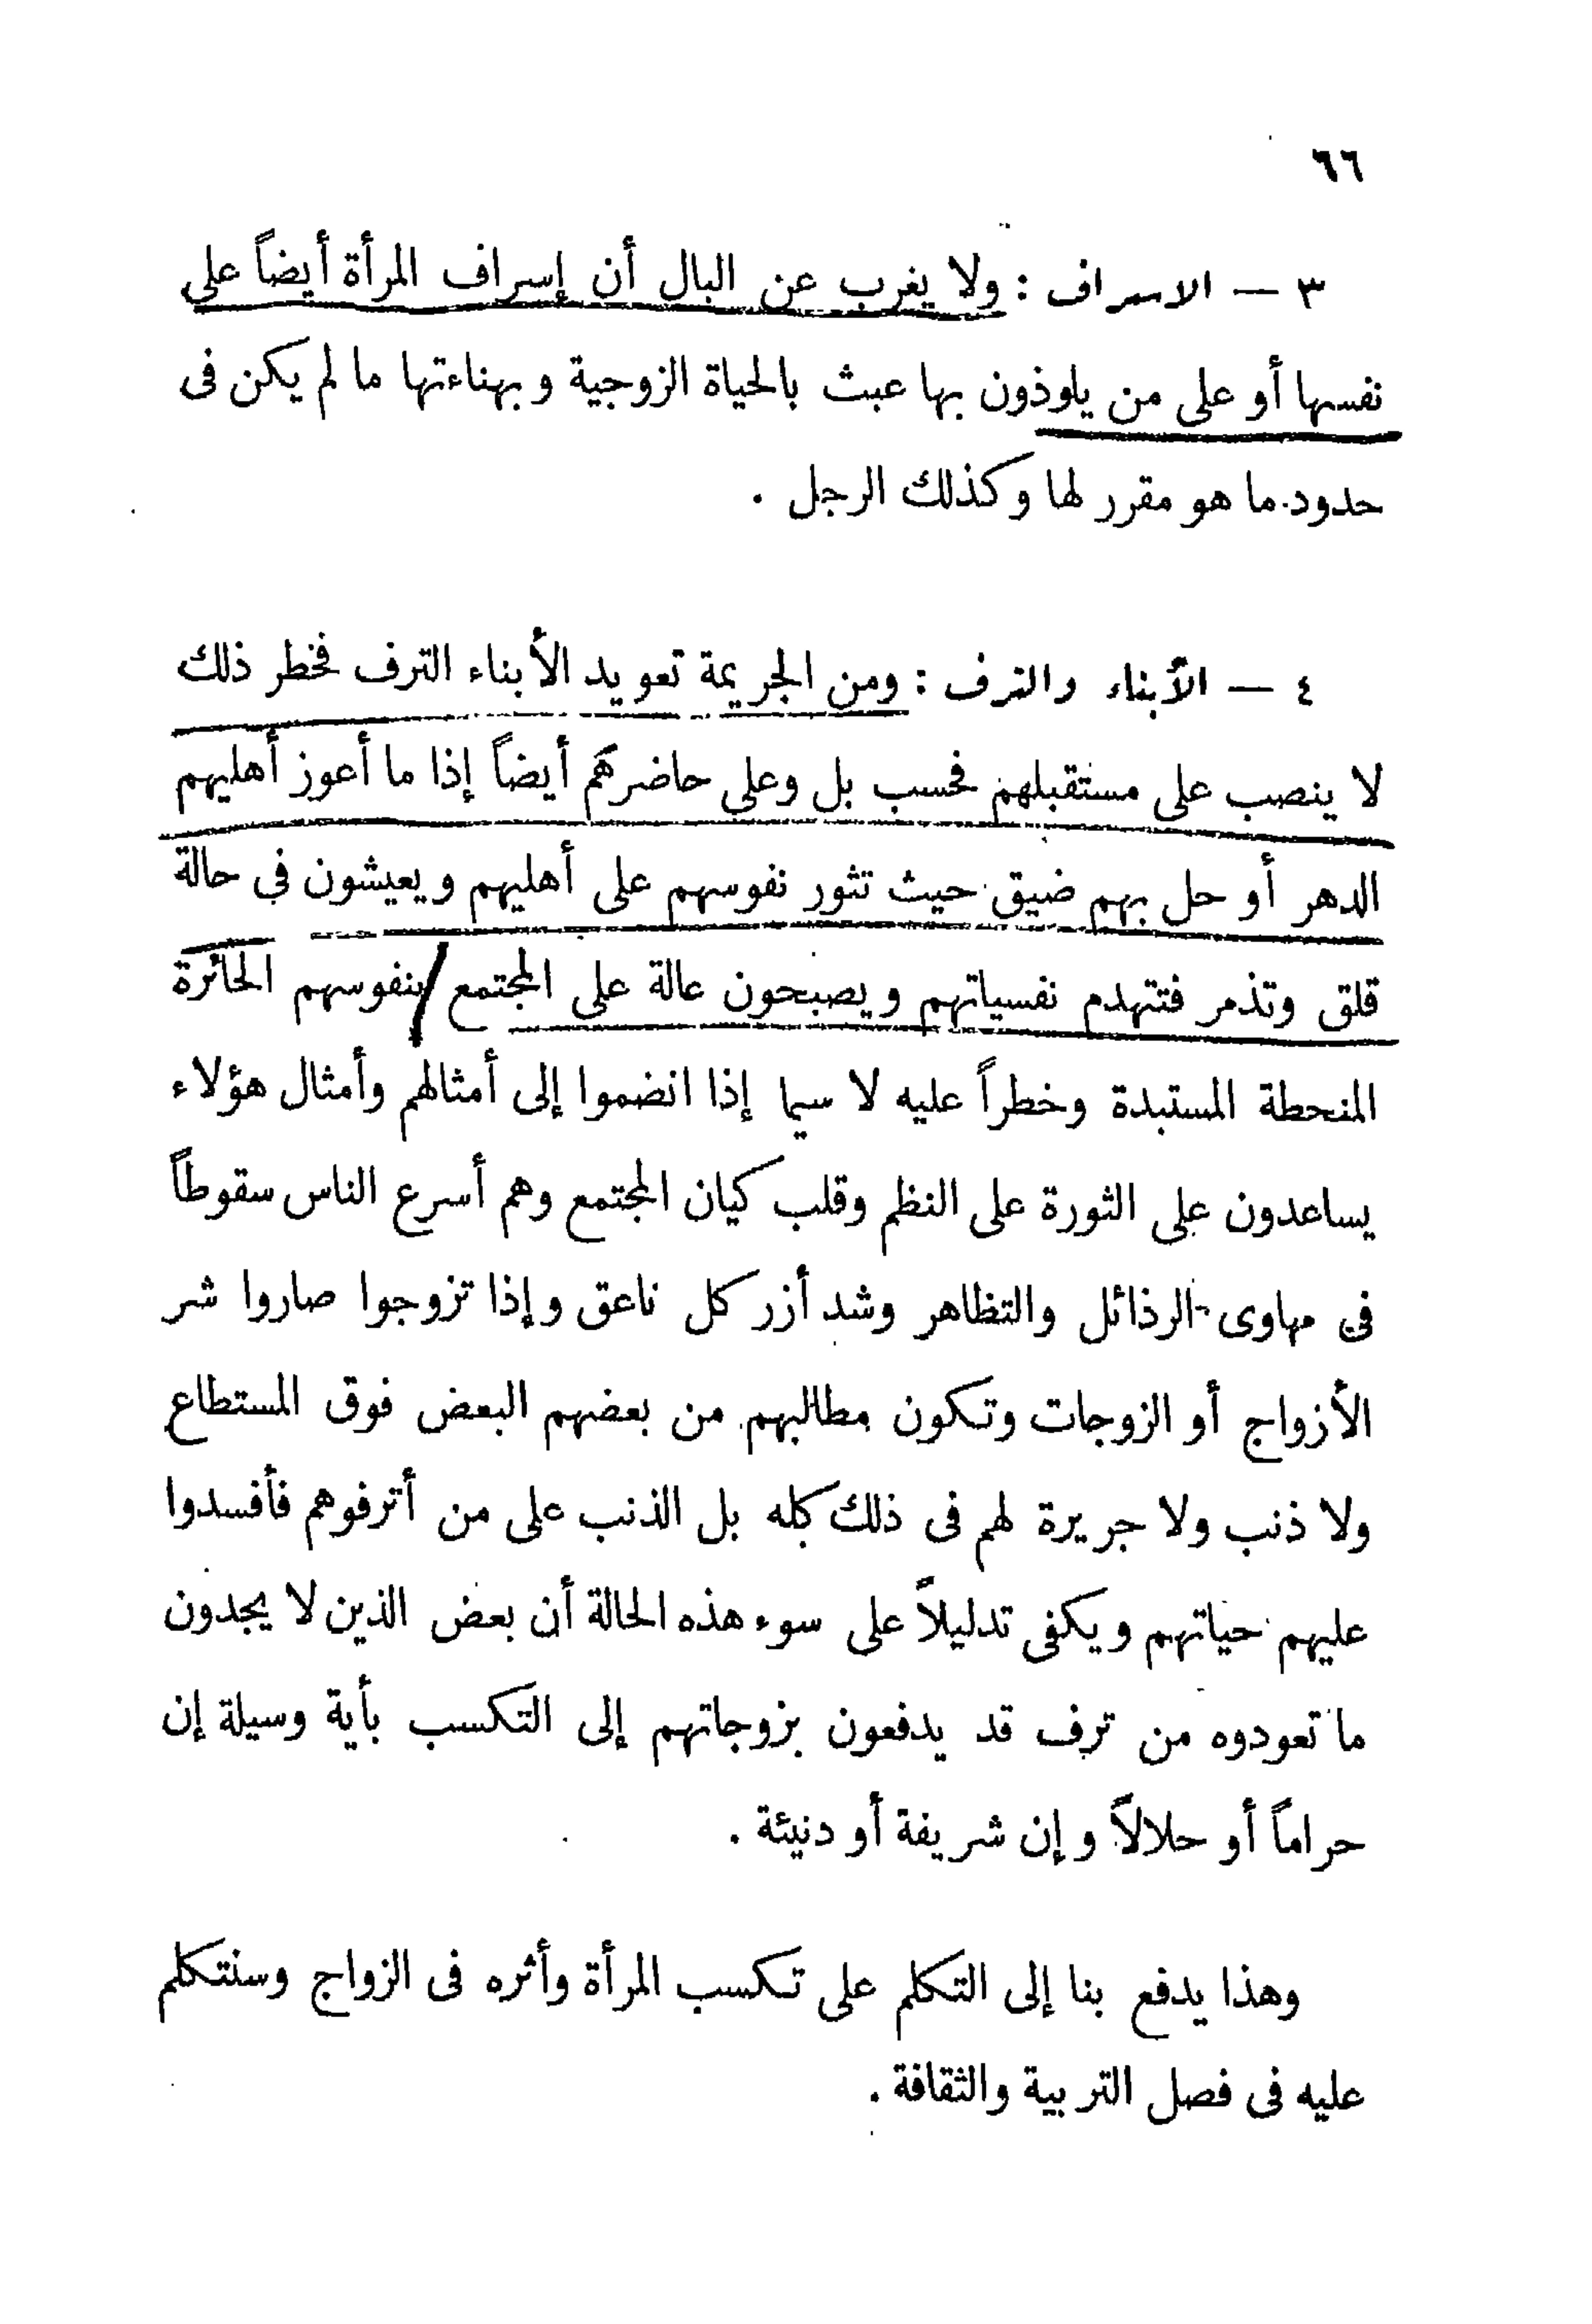 ٦٦
٣ — الاسراف : ولا يغرب عن البال أن إسراف المرأة أيضاً على
نفسها أو على من يلوذون بها عبث بالحياة الزوجية وبهناءتها ما لم يكن فى
حدود ما هو مقرر لها وكذلك الرجل .
٤ — الأبناء والترف : ومن الجريمة تعويد الأبناء الترف فخطر ذلك
لا ينصب على مستقبلهم فحسب بل وعلى حاضرهم أيضاً إذا ما أعوز أهليهم
الدهر أو حل بهم ضيق حيث تثور نفوسهم على أهليهم ويعيشون فى حالة
قلق وتذمر فتتهدم نفسياتهم ويصبحون عالة على المجتمع بنفوسهم الحائرة
المنحطة المستبدة وخطراً عليه لا سيما إذا انضموا إلى أمثالهم وأمثال هؤلاء
يساعدون على الثورة على النظم وقلب كيان المجتمع وهم أسرع الناس سقوطاً
فى مهاوى الرذائل والتظاهر وشد أزر كل ناعق وإذا تزوجوا صاروا شر
الأزواج أو الزوجات وتكون مطالبهم من بعضهم البعض فوق المستطاع
ولا ذنب ولا جريرة لهم فى ذلك كله بل الذنب على من أترفوهم فأفسدوا
عليهم حياتهم ويكفى تدليلاً على سوء هذه الحالة أن بعض الذين لا يجدون
ما تعودوه من ترف قد يدفعون بزوجاتهم إلى التكسب بأية وسيلة إن
حراماً أو حلالاً وإن شريفة أو دنيئة .
وهذا يدفع بنا إلى التكلم على تكسب المرأة وأثره فى الزواج وسنتكلم
عليه فى فصل التربية والثقافة .